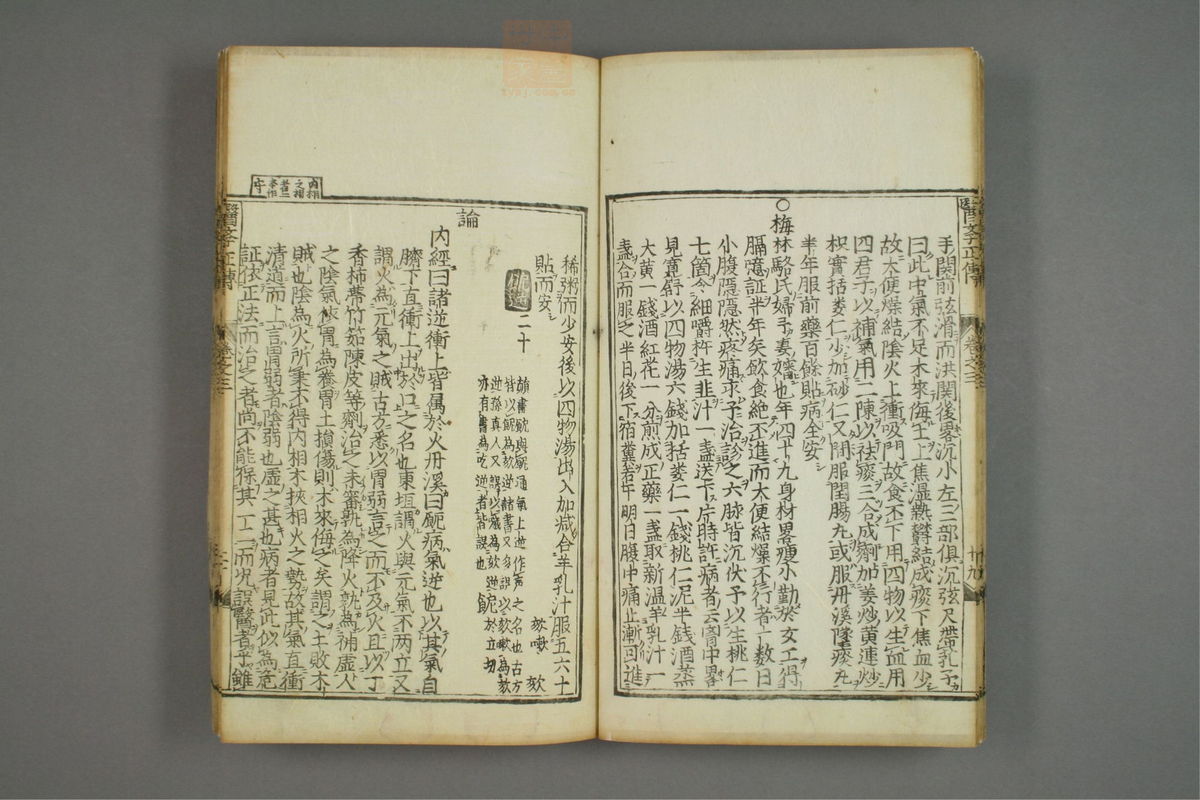 手関前弦滑而洪関後畧沉小左三部俱沉弦尺帶乳予
曰此中氣不足木來侮土上焦濕熱欝結成痰下焦血少
故大便燥結陰火上衝吸門故食不下用四物以生血用
四君子以補氣用二陳以祛痰三合成劑加姜炒黄連炒
枳實括蔞仁少加砂仁又間服閏腸丸或服丹溪墜痰丸
半年服前藥百餘貼病全安
○梅林駱氏婦予妻嬸也年四十九身材畧瘦小勤於女工得
膈噎証半年矣飲食絶不進而大便結燥不行者十數日
小腹隱隱然疼痛求予治診之六脉皆沉伏予以生桃仁
七箇令細嚼杵生韭汁一盞送下片時許病者云胷中畧
見寛舒以四物湯六錢加括蔞仁一錢桃仁泥半錢酒蒸
大黄一錢酒紅花一分煎成正藥一盞取新温羊乳汁一
盞合而服之半日後下宿糞若干明日腹中痛止漸可進
稀粥而少安後以四物湯出入加减合羊乳汁服五六十
貼而安
二十
欬嗽 欬
論
内經曰諸逆衝上皆属於火丹溪曰呃病氣逆也以其氣自
臍下直衝上出於口之名也東垣謂火與元氣不两立又
謂火為元氣之賊古方悉以胃弱言之而不及火且以丁
香柿蒂竹茹陳皮等劑治之未審孰為降火孰為補虚人
之陰氣依胃為養胃土損傷則木來侮之矣謂之土敗木
賊也陰為火所乗不得内相木挾相火之勢故其氣直衝
清道而上言胃弱者陰弱也虚之甚也病者見此似為危
証依正法而治之者尚不能保其一二而况誤醫者乎雖
醫學正傳
卷之三
十九